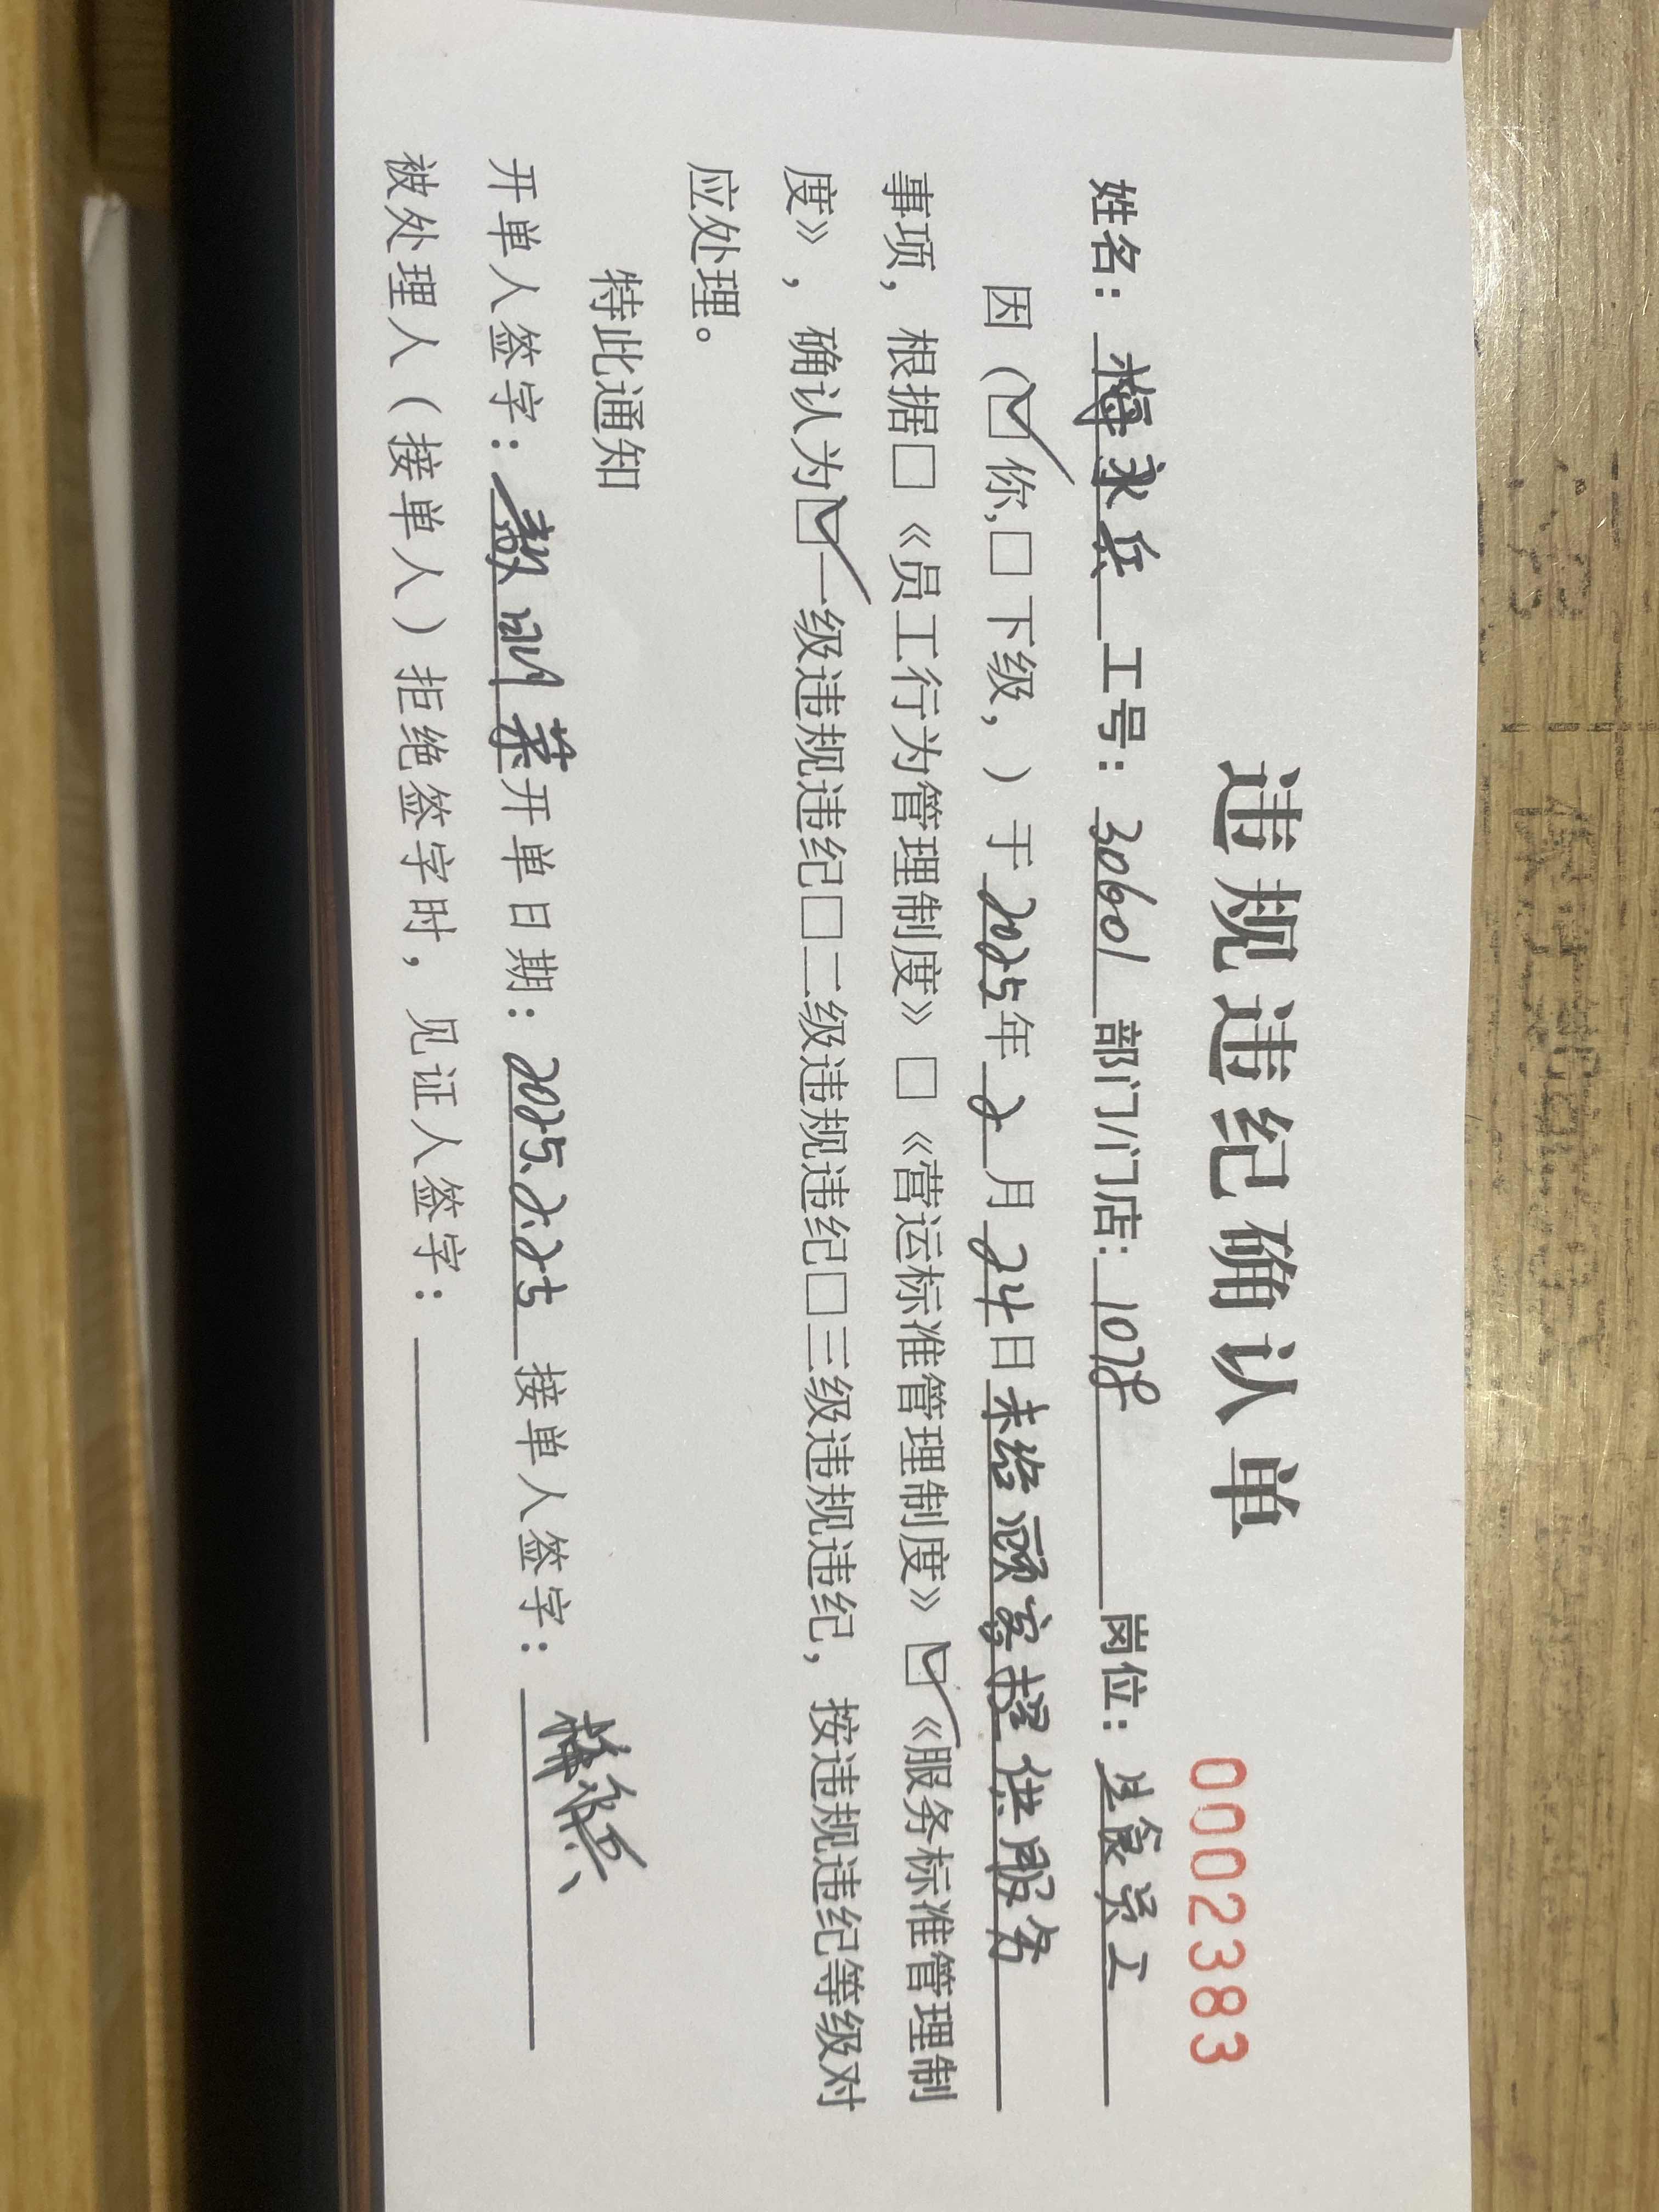 违规违纪确认单
00002383
姓名：梅永兵 工号：30601 部门/门店：1078 岗位：生鲜员工
因（☑你,□下级，）于2025年2月24日未给顾客提供服务
事项，根据□《员工行为管理制度》□《营运标准管理制度》☑《服务标准管理制
度》，确认为☑一级违规违纪□二级违规违纪□三级违规违纪，按违规违纪等级对
应处理。
特此通知
开单人签字： 开单日期：2025.2.25 接单人签字：梅永兵
被处理人（接单人）拒绝签字时，见证人签字：